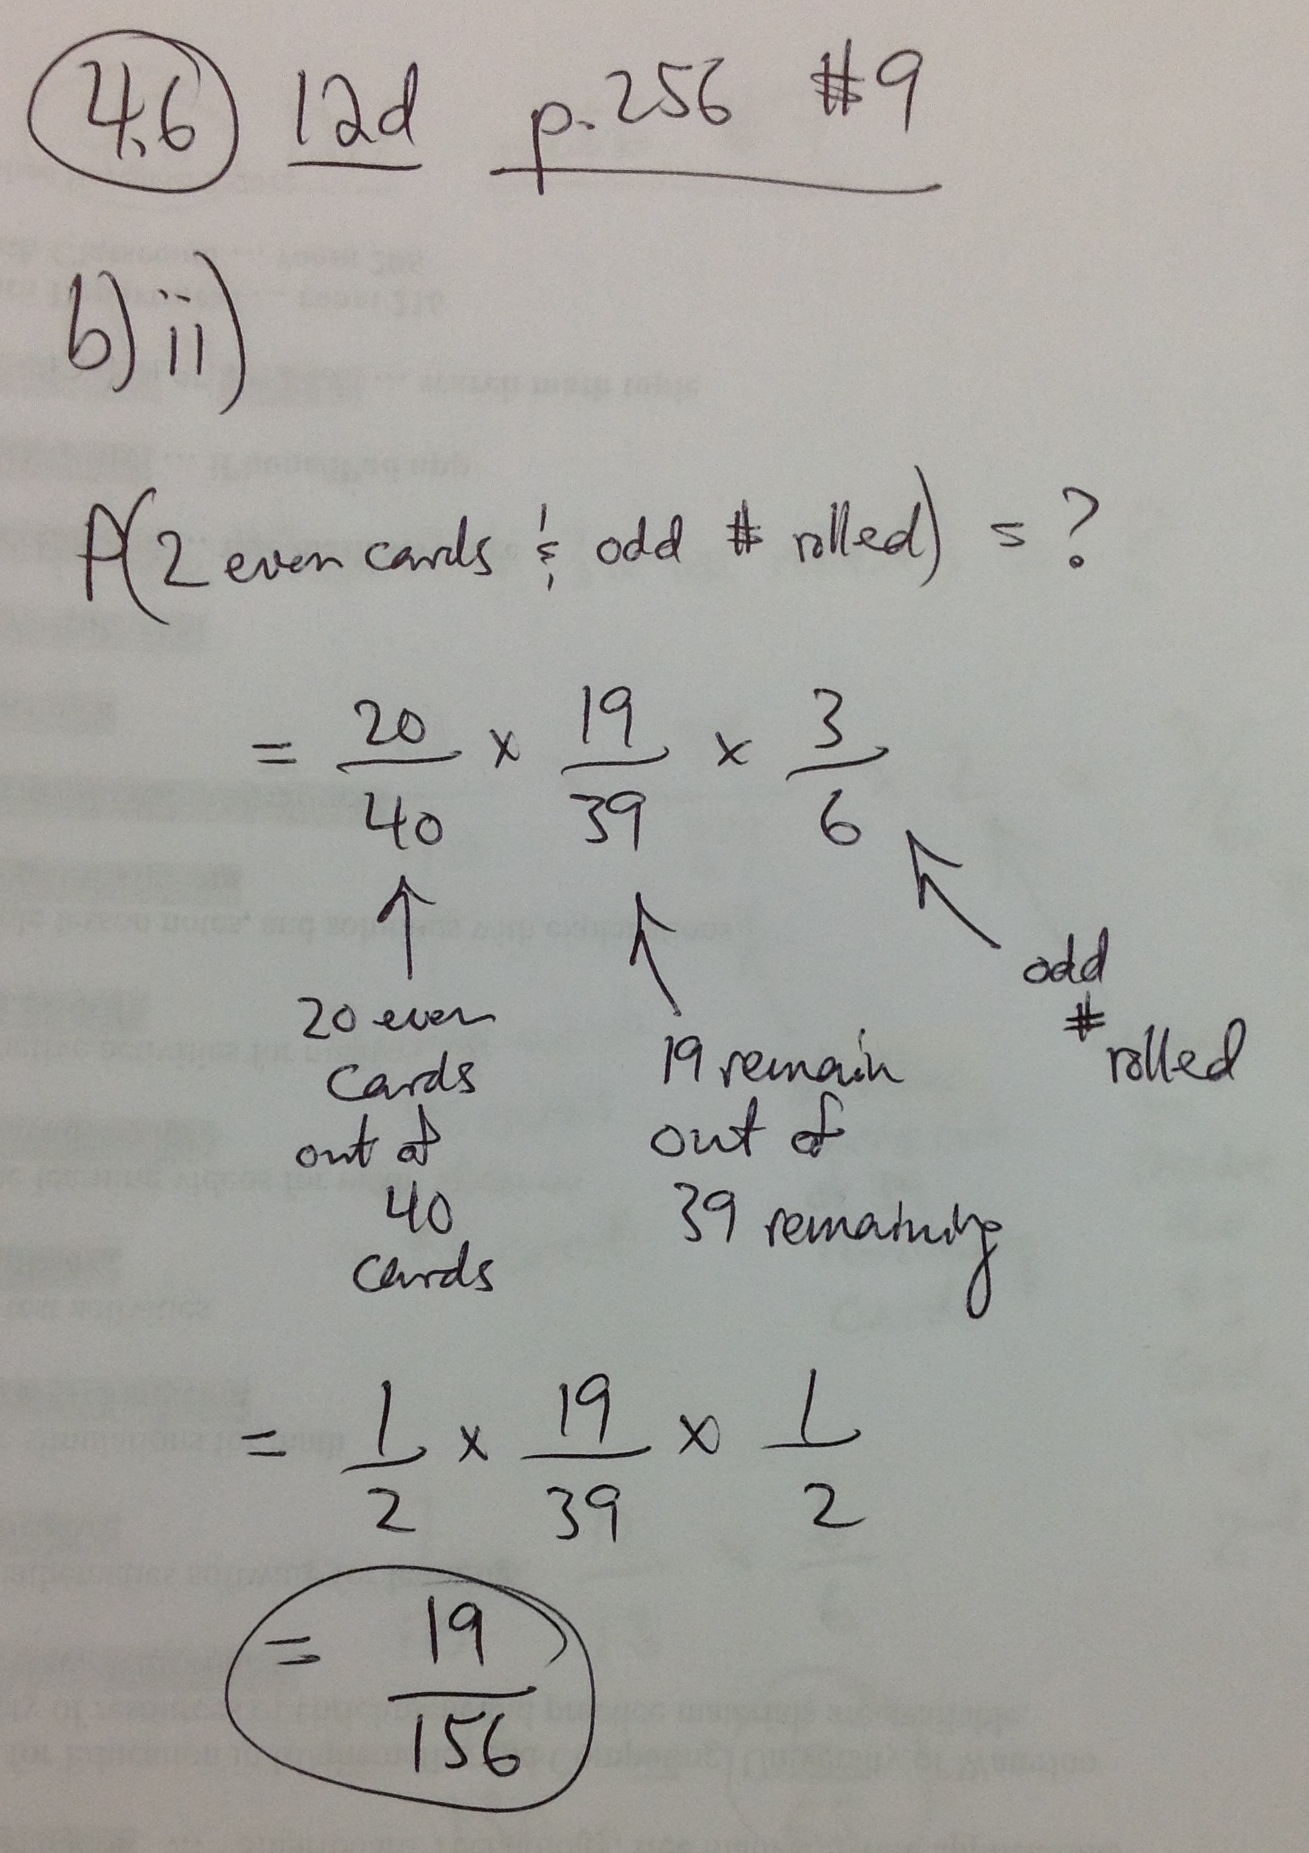 4.6 12d p.256 #9
b) ii)
P(2 even cards & odd # rolled) = ?
= 20/40 x 19/39 x 3/6
20 even
cards
out of
40
cards
19 remain
out of
39 remaining
odd
#
rolled
= 1/2 x 19/39 x 1/2
= 19/156